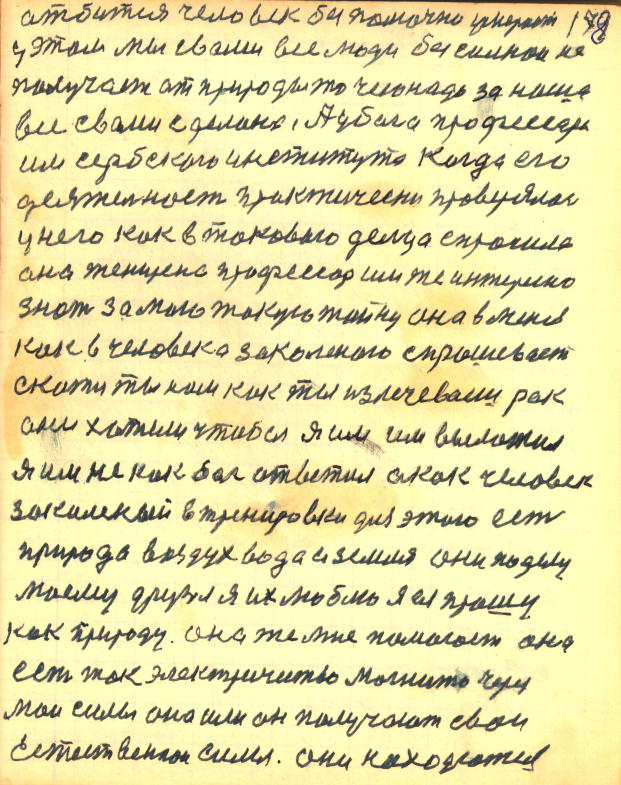 атбится человек бы паточно умерает 178
у этом мы свами все люди бессилнои не
получаем ат природы то чегонадо за наша
все свами сделоно, А у бога професора
им сербского института когда его
деятелност практически проверялас
у него как в такового делца спросила
она женщена професор им же интересно
знат за мою такую тайну она в меня
как в человека заколеного спрашевает
скажи ты нам как ты излечеваеш рак
они хотели чтобы я им им выложил
я им не как бог ответил а как человек
заколеный в тренировки для этого ест
природа воздух вода и земля они по делу
моему друзя я их люблю я ея прошу
как природу. она же мне помогает она
ест ток электричитво могнито через
мои силы она или он получают свои
Естественои силы. они находятся